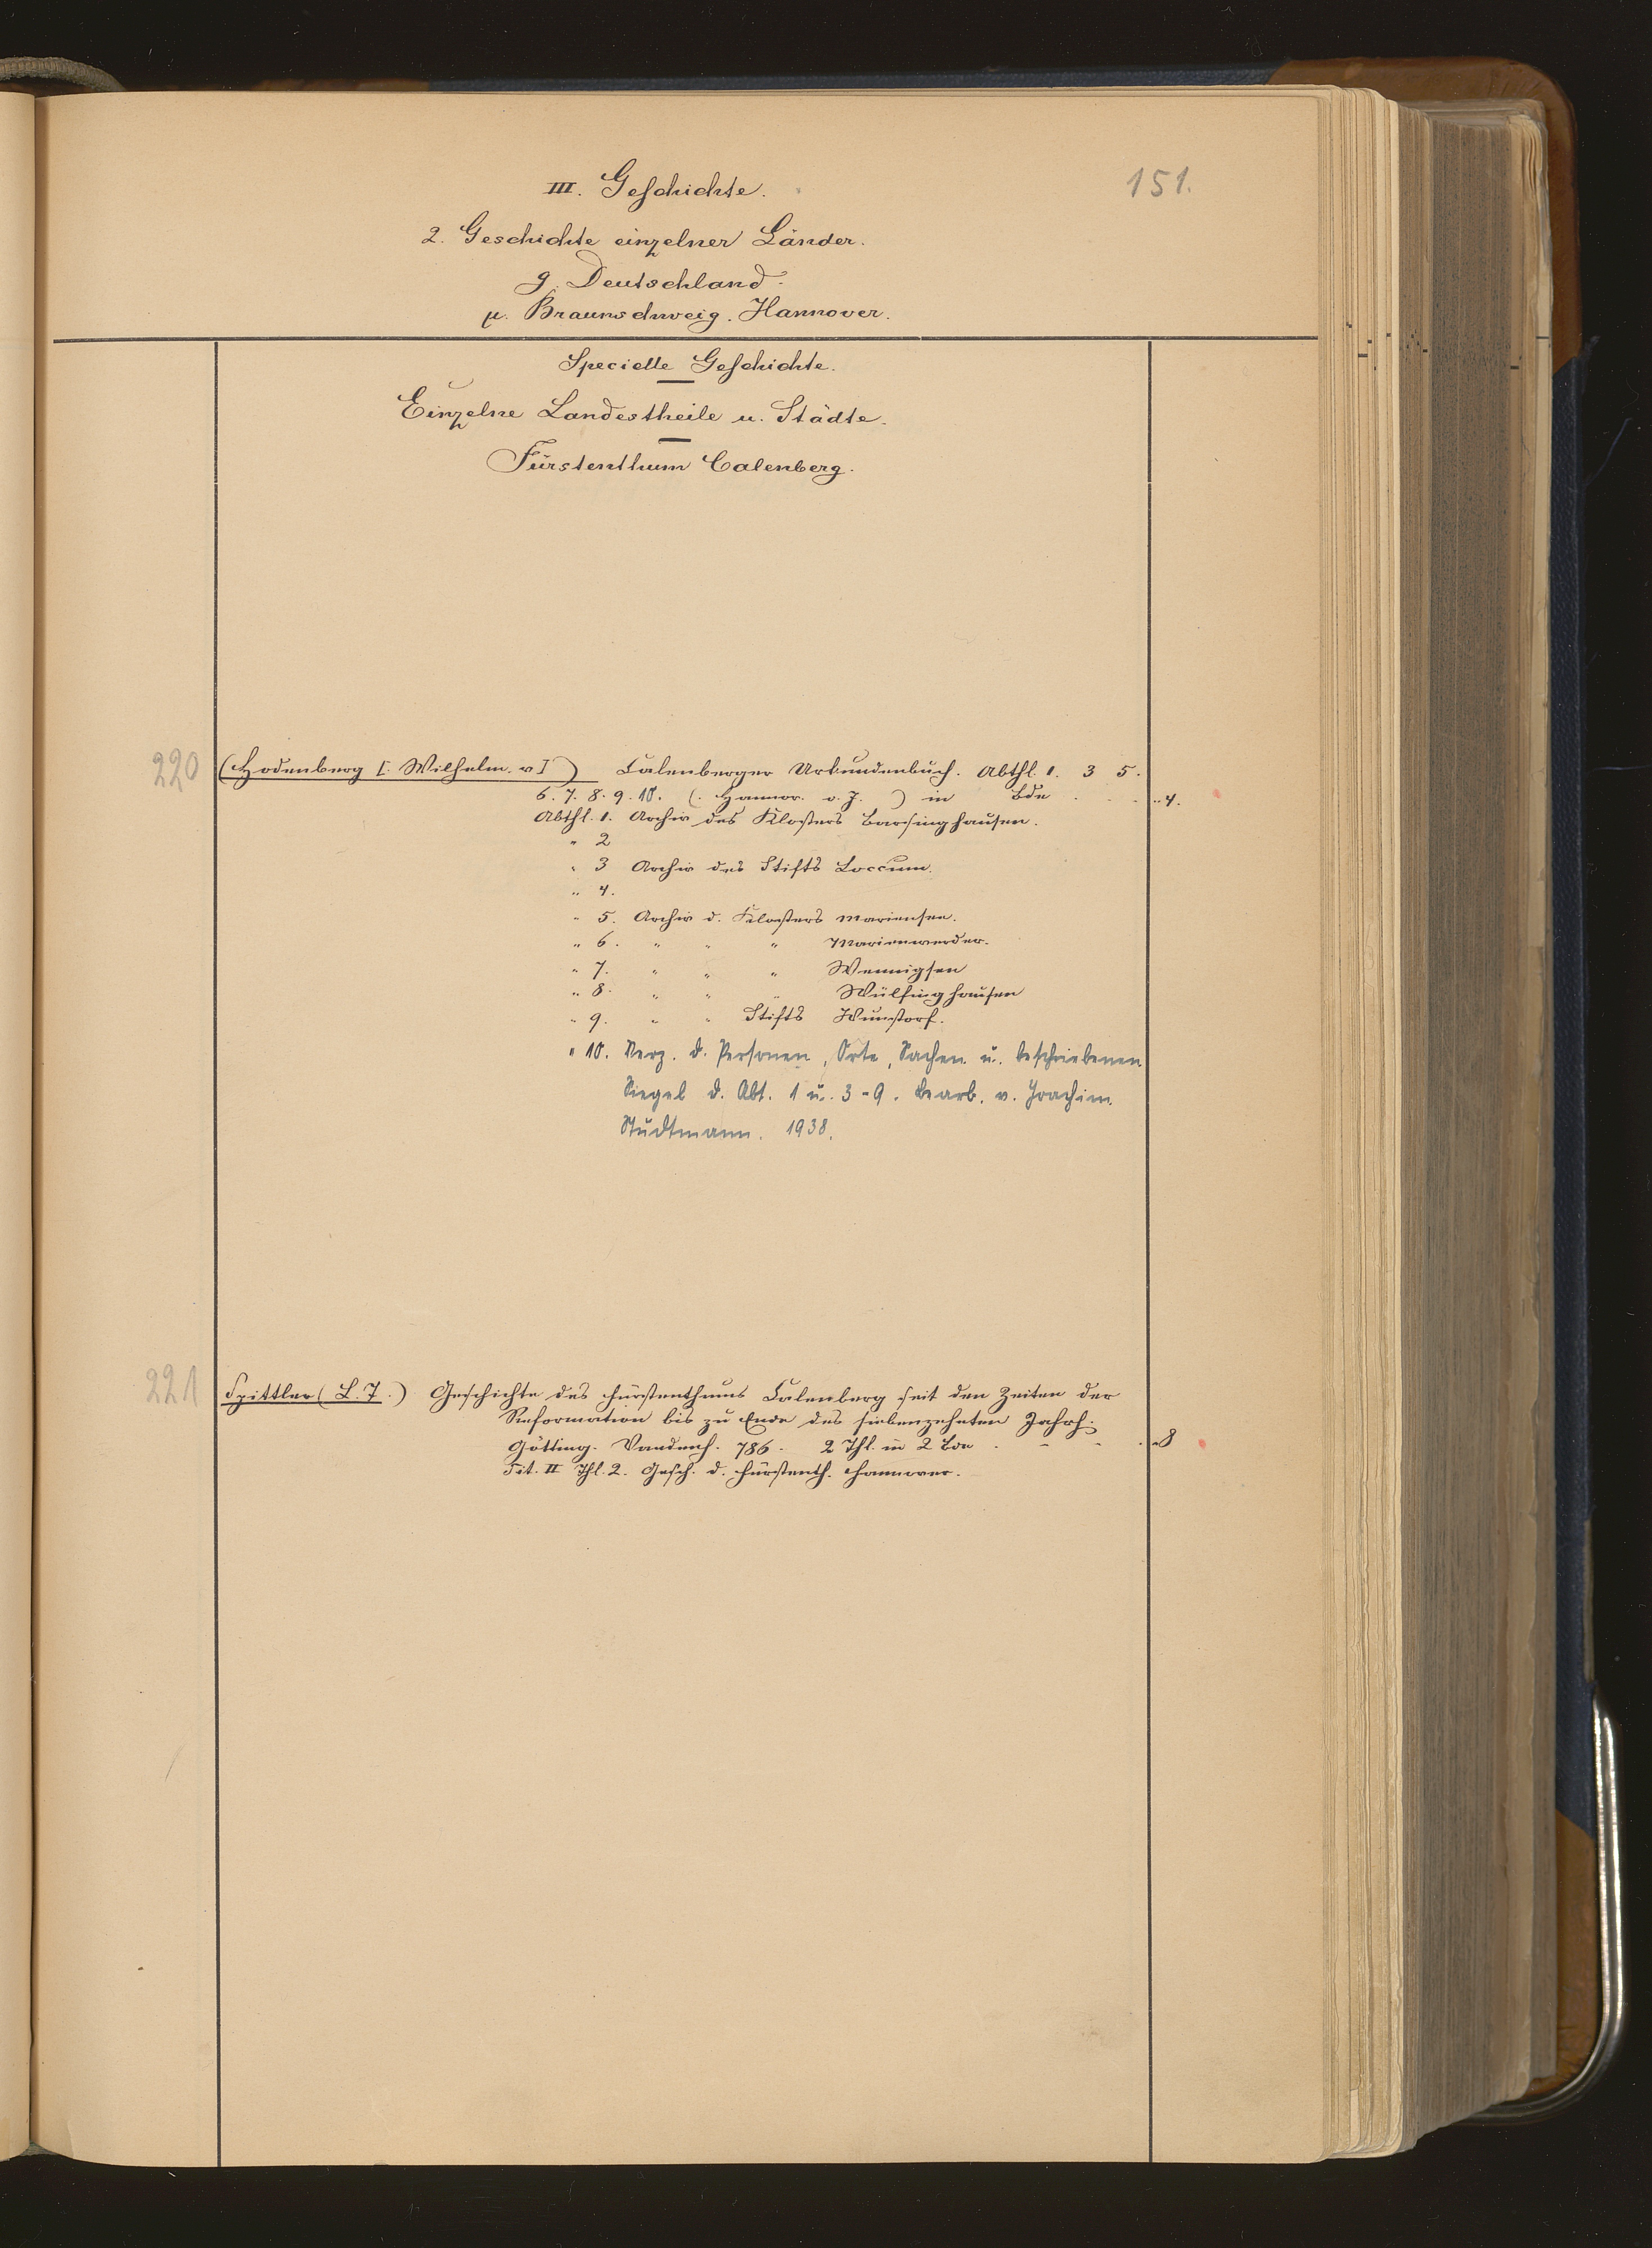 III. Geschichte.
151.
2. Geschichte einzelner Länder.
g. Deutschland.
µ. Braunschweig. Hannover.
Specielle Geschichte.
Einzelne Landestheile u. Städte.
Fürstenthum Calenberg.
220 (Hodenberg [: Wilhelm. v ]) Calenberger Urkundenbuch. Abthl. 1. 3 5.
6. 7. 8. 9. 10. (. Hannov. o. J. ) in Bde . . . „ 4.
Abthl. 1. Archiv des Klosters Barsinghausen.
„ 2
„ 3 Archiv des Stifts Loccum.
„ 4.
„ 5. Archiv d. Klosters Mariensee.
„ 6. „ „ „ Marienwerder.
„ 7. „ „ „ Wennigsen
„ 8. „ „ „ Wülfinghausen
„ 9. „ „ Stifts Wunstorf.
„ 10. Verz. d. Personen, Orte, Sachen u. beschriebenen
Siegel d. Abt. 1 u. 3-9. Bearb. v. Joachim
Studtmann. 1938.
221 Spittler (L. T.) Geschichte des Fürstenthums Calenberg seit den Zeiten der
Reformation bis zu Ende des siebenzehnten Jahrh.
Götting. Vandenh. 786. 2 Thl. in 2 Bde . - - . „ 8
Tit. II Thl. 2. Gesch. d. Fürstenth. Hannover.